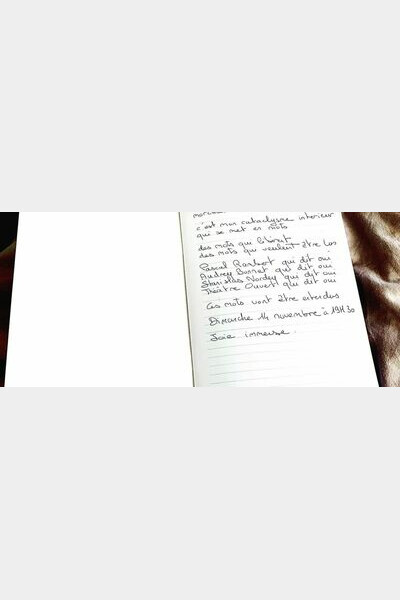 c'est mon cataclysme intérieur
qui se met en mots
des mots qui libèrent
des mots qui veulent être lus
Pascal Rambert qui dit oui
Audrey Bonnet qui dit oui
Stanislas Nordey qui dit oui
Théâtre Ouvert qui dit oui
Ces mots vont être entendus
Dimanche 14 novembre à 19H30
Joie immense.